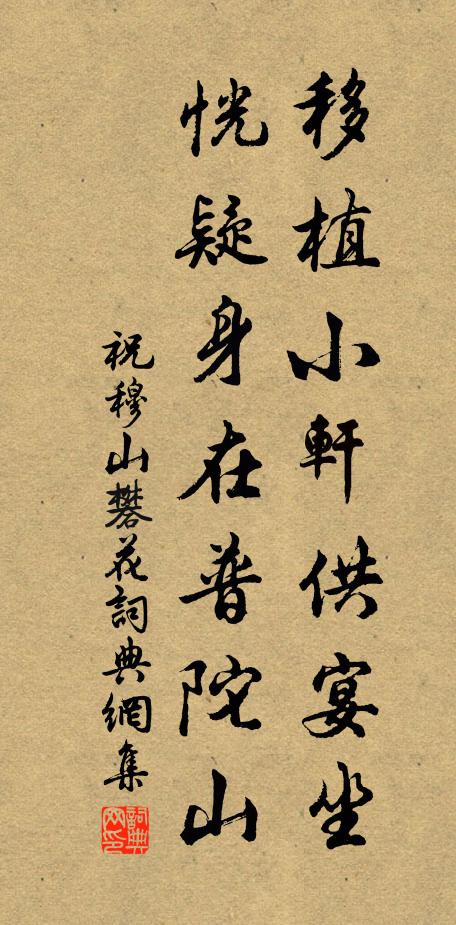 移植小軒供宴坐
恍疑身在普陀山
祝穆山礬花詞典網集
詞典網印